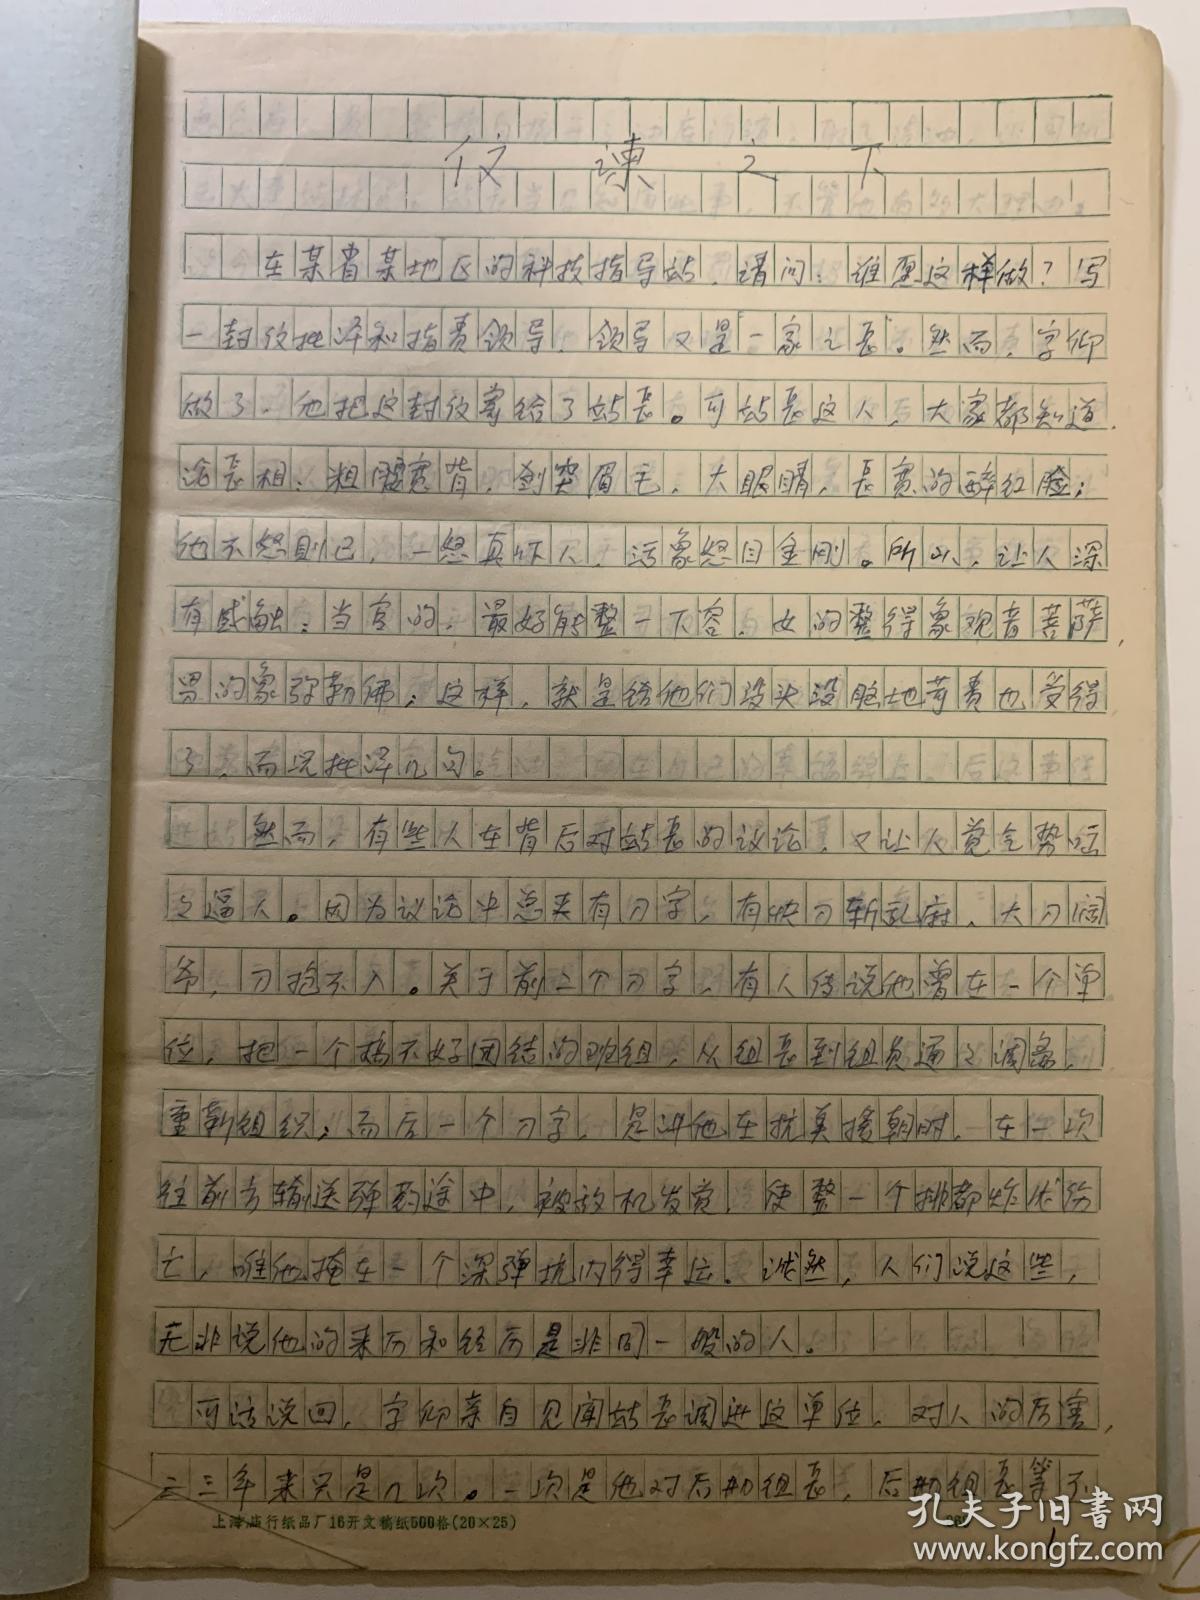 谏之下
在某省某地区的科技指导站，请问：谁愿这样做？写
一封信批评和指责领导，领导又是“一家之长”。然而，字仰
做了，他把这封信寄给了站长。可站长这人，大家都知道，
论长相：粗腰宽背，剑突眉毛，大眼睛，长宽的醉红脸；
他不怒则已，一怒真吓人，活象怒目金刚。所以，让人深
有感触：当官的，最好能整一下容，女的整得象观音菩萨，
男的象弥勒佛；这样，就是给他们没头没脑地苛责也受得
了，而况批评几句。
然而，有些人在背后对站长的议论，又让人觉气势咄
之逼人。因为议论中总夹有刀字，有快刀斩乱麻、大刀阔
斧，刀枪不入。关于前二个刀字，有人传说他曾在一个单
位，把一个搞不好团结的班组，从组长到组员通之调条，
重新组织；而后一个刀字，是讲他在抗美援朝时，在一次
往前方输送弹药途中，被敌机发觉，使整一个排都炸伤
亡，唯他掩在一个深弹坑内得幸运。诚然，人们说这些，
无非说他的来历和经历是非同一般的人。
可话说回，字仰亲自见闻站长调进这单位，对人的厉害，
二三年来只是几次。一次是他对后勤组长，后勤组长等不
上海庙行纸品厂16开文稿纸500格(20×25)
1
孔夫子旧书网
www.kongfz.com